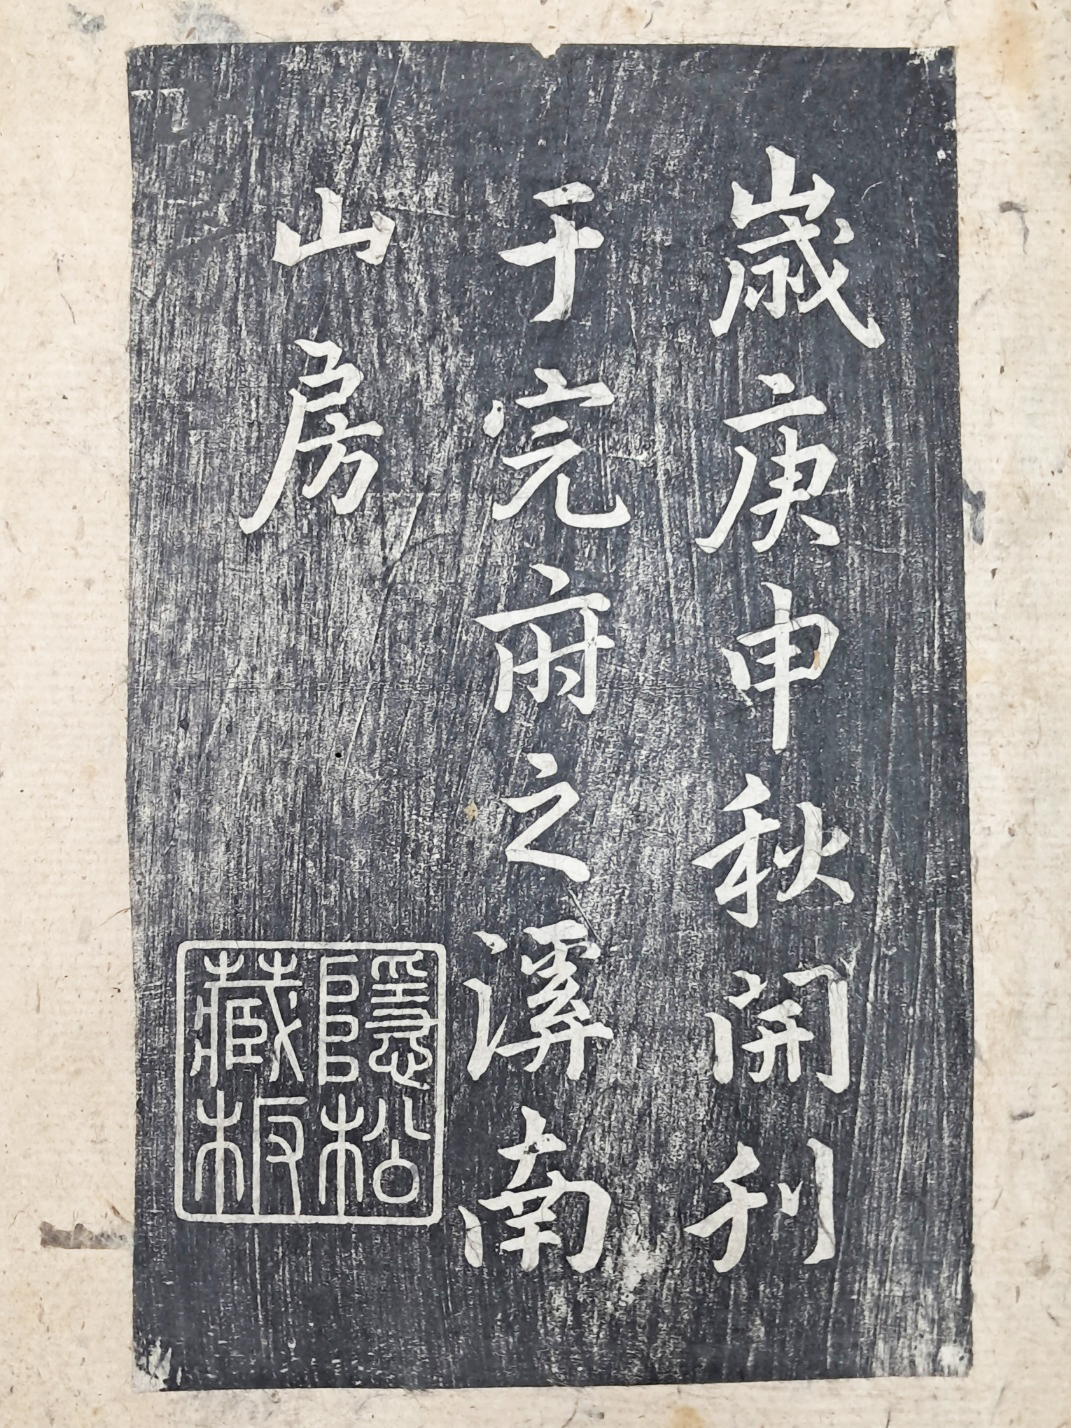 歲庚申秋開刊
于完府之溪南
山房
隱松
藏板